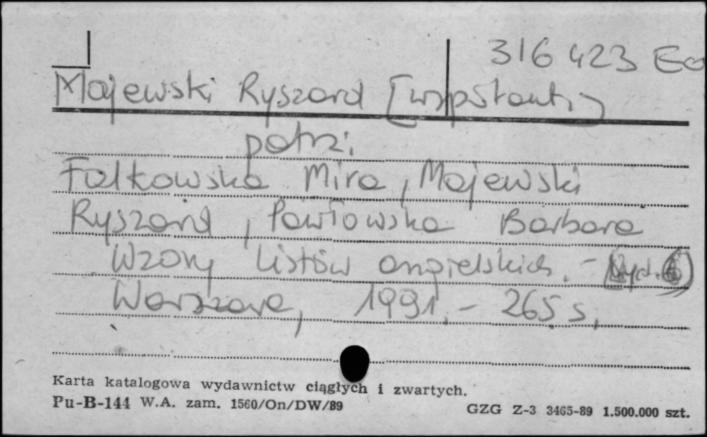 316423 Eo
Majewski Ryszard [współaut.]
patrz:
Falkowska Mira, Majewski
Ryszard, Pawłowska Barbara
Wzory listów angielskich. - [Wyd. 6]
Warszawa, 1991. - 265 s.
Karta katalogowa wydawnictw ciągłych i zwartych.
Pu-B-144 W.A. zam. 1560/On/DW/89
GZG Z-3 3465-89 1.500.000 szt.